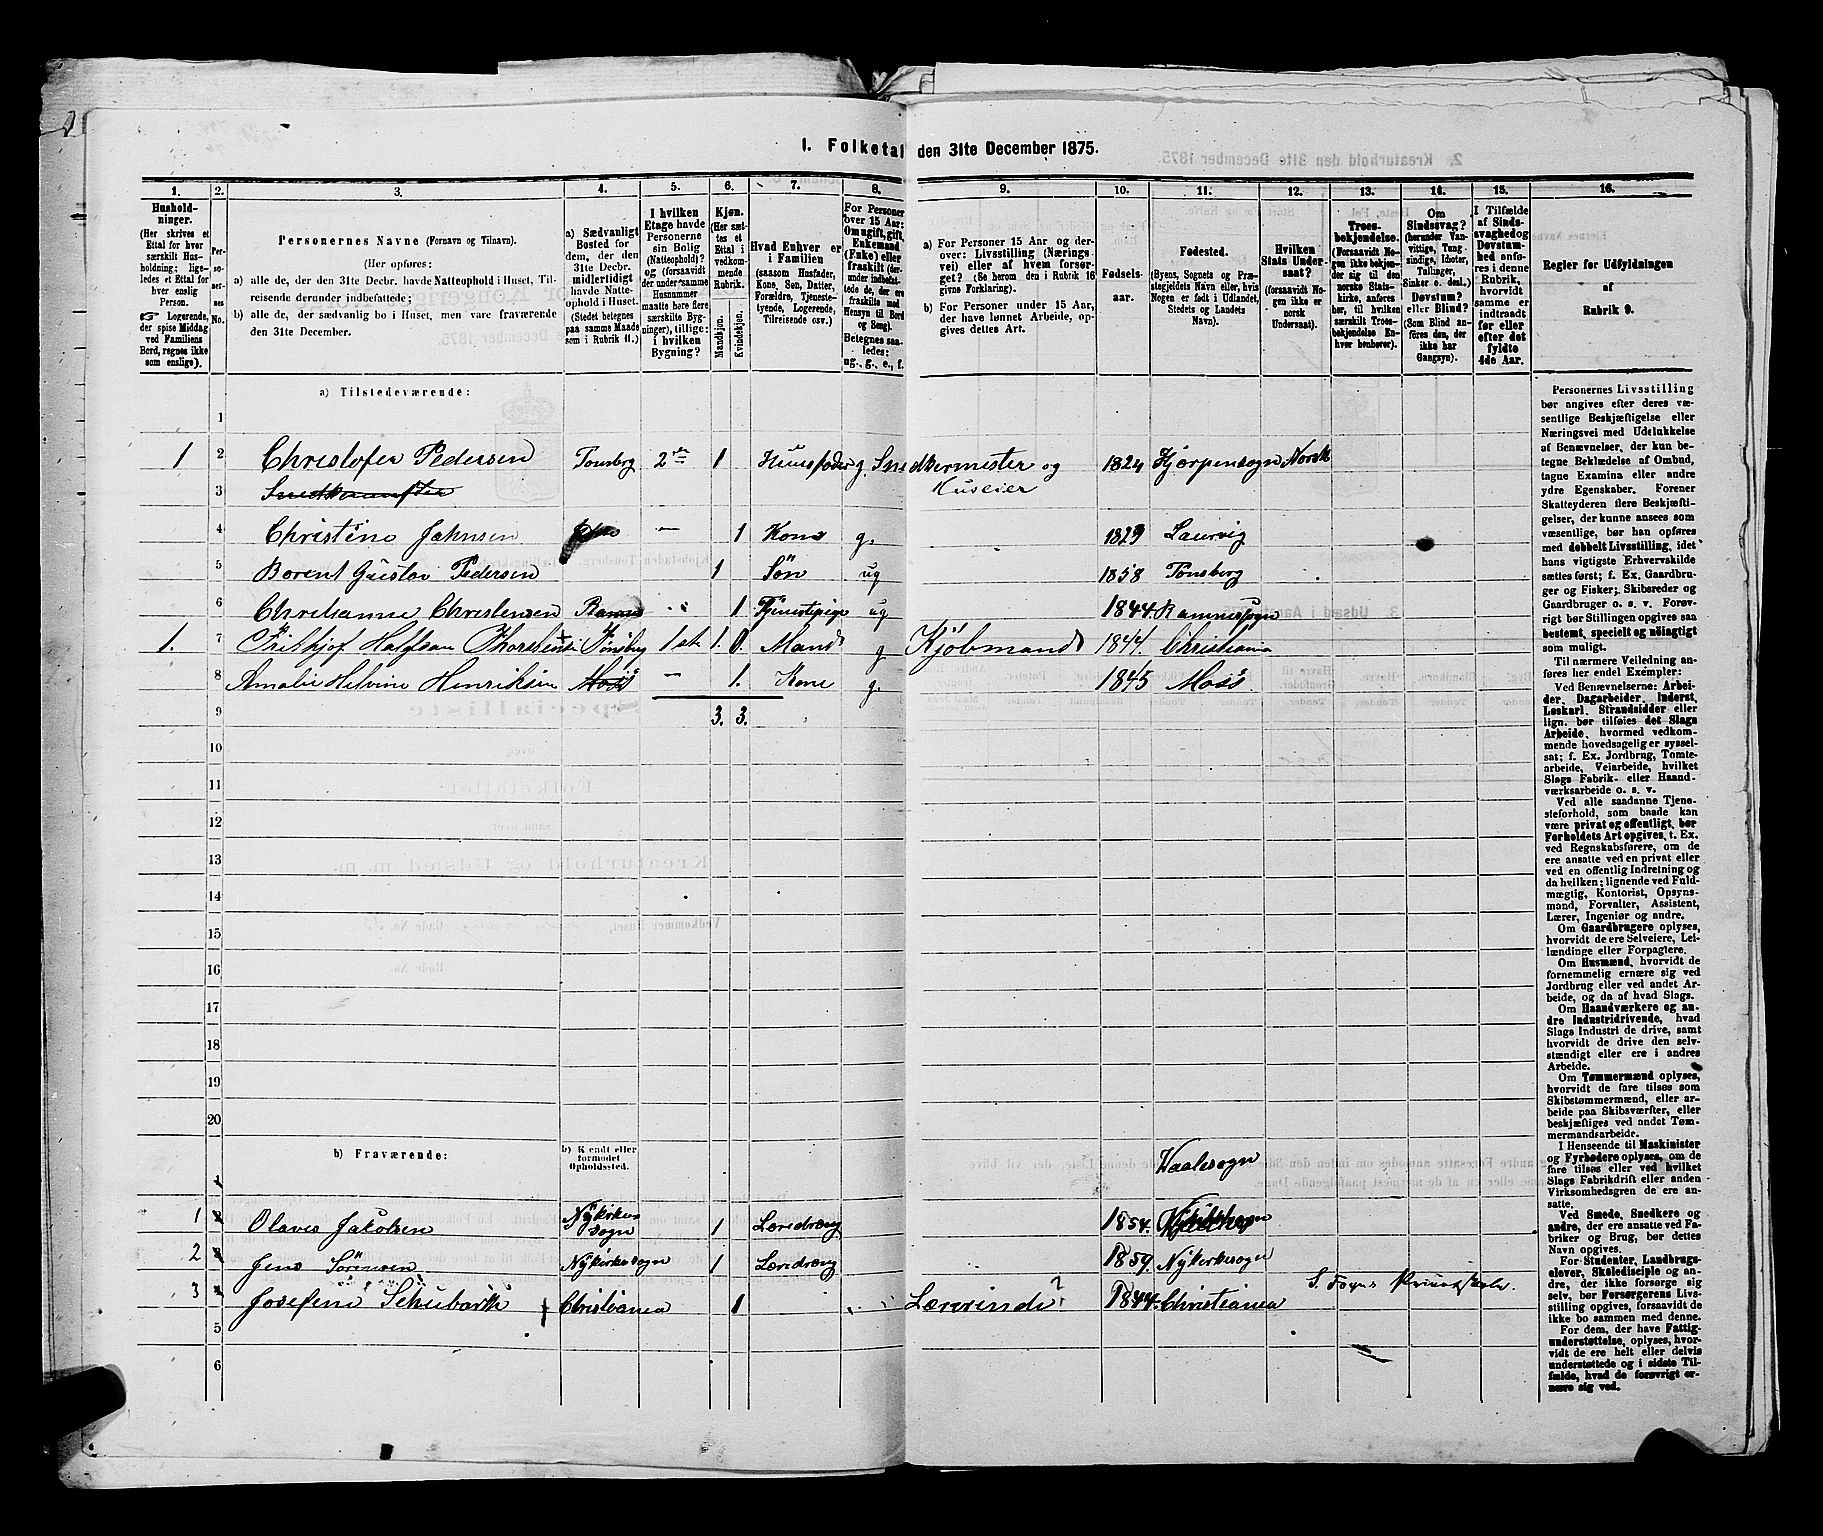 1. Folketal den 31te December 1875.
1. 2. 3. 4. 5. 6. 7. 8. 9. 10. 11. 12. 13. 14. 15. 16.
Hushold-
ninger.
(Her skrives et
Ettal for hver
særskilt Hus-
holdning; lige-
ledes et Ettal for
hver enslig
Person.
Logerende,
der spise Middag
ved Familiens
Bord, regnes ikke
som enslige).
Per-
so-
ner-
nes
No.
Personernes Navne (Fornavn og Tilnavn).
(Her opføres:
a) alle de, der den 31te Decbr. havde Natteophold i Huset, Til-
reisende derunder indbefattede;
b) alle de, der sædvanlig bo i Huset, men vare fraværende
den 31te December.
a) Sædvanligt
Bosted for
dem, der den
31te Decbr.
midlertidigt
havde Natte-
ophold i Huset.
(Stedet betegnes
paa samme Maade
som i Rubrik 11.)
I hvilken
Etage havde
Personerne
sin Bolig
(Natteophold)?
og (forsaavidt
der under samme
Husnummer
maatte høre flere
særskilte Byg-
ninger), tillige:
i hvilken
Bygning?
Kjøn.
(Her sæt-
tes et
Ettal i
vedkom-
mende
Rubrik.
Mandkjøn.
Kvindekjøn.
Hvad Enhver er
i Familien
(saasom Husfader,
Kone, Søn, Datter,
Forældre, Tjeneste-
tyende, Logerende,
Tilreisende osv.)
For Personer
over 15 Aar:
Om ugift, gift,
Enkemand
(Enke) eller
fraskilt (der-
under indbefat-
tede de, der ere
fraskilte med
Hensyn til Bord
og Seng).
Betegnes saa-
ledes:
ug., g., e., f.
a) For Personer 15 Aar og der-
over: Livsstilling (Nærings-
vei) eller af hvem forsør-
get? (Se herom den i Rubrik 16
givne Forklaring).
b) For Personer under 15 Aar,
der have lønnet Arbeide, op-
gives dettes Art.
Fødsels-
aar.
Fødested.
(Byens, Sognets og Præ-
stegjeldets Navn eller, hvis
Nogen er født i Udlandet,
Stedets og Landets
Navn).
Hvilken
Stats Under-
saat?
(forsaavidt No-
gen ikke er
norsk
Undersaat).
Troes-
bekjendelse.
(Forsaavidt No-
gen ikke bekjen-
der sig til den
norske Stats-
kirke, anføres
her, til hvilken
særskilt Troes-
bekjendelse En-
hver henhører).
Om
Sindssvag?
(herunder Van-
vittige, Tung-
sindige, Idioter,
Tullinger,
Sinker o. desl.)
Døvstum?
eller Blind?
(Som Blind an-
føres den, der
ikke har
Gangsyn).
I Tilfælde
af Sinds-
svaghed og
Døvstum-
hed anføres
i denne
Rubrik,
hvorvidt
samme er
indtraadt
før eller
efter det
fyldte
4de Aar.
Regler for Udfyldningen
af
Rubrik 9.
a) Tilstedeværende:
1
1 2 Christofer Pedersen Tonsberg 2den 1 Huusfader g. Snedkermester og 1824 Hjerpensogn Norsk
3 Huseier
4 Christine Jahnsen 1 Kone g. 1829 Laurvig
5 Borent Gustav Pedersen 1 Søn ug 1858 Tønsberg
6 Christianne Christensen Ramnes 1 Tjenestepige ug 1844 Ramnessogn
1. 7 Frithjof Halfdan Thorstensen Tønsberg 1ste 1. 0 Mand g Kjøbmand 1844. Christiania
8 Amalie Helvine Henriksen Moss 1. Kone g. 1845 Moss
9 3. 3.
10
11
12
13
14
15
16
17
18
19
20
b) Fraværende:
b) Kendt eller
formodet
Opholdssted.
1 Vaalesogn
1 2 Olaves Jakobsen Nykirke-
sogn 1 Læredreng 1854.
2 3 Jens Sørensen Nykirkesogn 1 Læredreng 1859. Nykirkesogn
3 4 Josefine Schubarth Christiania 1 Lærerinde? 1844. Christiania S. Foyns Privatskole.
5
6
Personernes Livsstilling
bør angives efter deres væ-
sentlige Beskjæftigelse eller
Næringsvei med Udelukkelse
af Benævnelser, der kun be-
tegne Beklædelse af Ombud,
tagne Examina eller andre
ydre Egenskaber. Forener
Skatteyderen flere Beskjæfti-
gelser, der kunne ansees som
væsentlige, bør han opføres
med dobbelt Livsstilling, idet
hans vigtigste Erhvervskilde
sættes først; f. Ex. Gaardbru-
ger og Fisker; Skibsreder og
Gaardbruger o. s. v. Forøv-
rigt bør Stillingen opgives saa
bestemt, specielt og nøiagtigt
som muligt.
Til nærmere Veiledning an-
føres her endel Exempler:
Ved Benævnelserne: Arbei-
der, Dagarbeider, Inderst,
Løskarl, Strandsidder eller
lign. bør tilføies det Slags
Arbeide, hvormed vedkom-
mende hovedsagelig er syssel-
sat; f. Ex. Jordbrug, Tomte-
arbeide, Veiarbeide, hvilket
Slags Fabrik- eller Haand-
værksarbeide o. s. v.
Ved alle saadanne Tjene-
steforhold, som baade kan
være privat og offentligt, bør
Forholdets Art opgives, t. Ex.
ved Regnskabsførere, om de
ere ansatte ved en privat eller
ved en offentlig Indretning og
da hvilken; lignende ved Fuld-
mægtig, Kontorist, Opsyns-
mand, Forvalter, Assistent,
Lærer, Ingeniør og andre.
Om Gaardbrugere oplyses,
hvorvidt de ere Selveiere, Lei-
lændinge eller Forpagtere.
Om Husmænd, hvorvidt de
fornemmelig ernære sig ved
Jordbrug eller ved andet Ar-
beide, og da af hvad Slags.
Om Haandværkere og an-
dre Industridrivende, hvad
Slags Industri de drive, samt
hvorvidt de drive den selv-
stændigt eller ere i andres
Arbeide.
Om Tømmermænd oplyses,
hvorvidt de fare tilsøs som
Skibstømmermænd, eller ar-
beide paa Skibsværfter, eller
beskjæftiges ved andet Tøm-
mermandsarbeide.
I Henseende til Maskinister
og Fyrbødere oplyses, om de
fare tilsøs eller ved hvilket
Slags Fabrikdrift eller anden
Virksomhedsgren de ere an-
satte.
Ved Smede, Snedkere og
andre, der ere ansatte ved Fa-
briker og Brug, bør dettes
Navn opgives.
For Studenter, Landbrugs-
elever, Skoledisciple og an-
dre, der ikke forsørge sig
selv, bør Forsørgerens Livs-
stilling opgives, forsaavidt de
ikke bo sammen med denne.
For dem, der have Fattig-
understøttelse, oplyses, hvor-
vidt de ere helt eller delvis
understøttede og i sidste Til-
fælde, hvad de forøvrigt er-
nære sig ved.